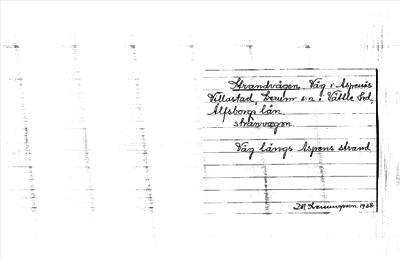 Strandvägen, Väg i Aspenäs
Villastad, Lerum sn i Vättle hd,
Älfsborgs län.
strànvægen
Väg längs Aspens strand
1928